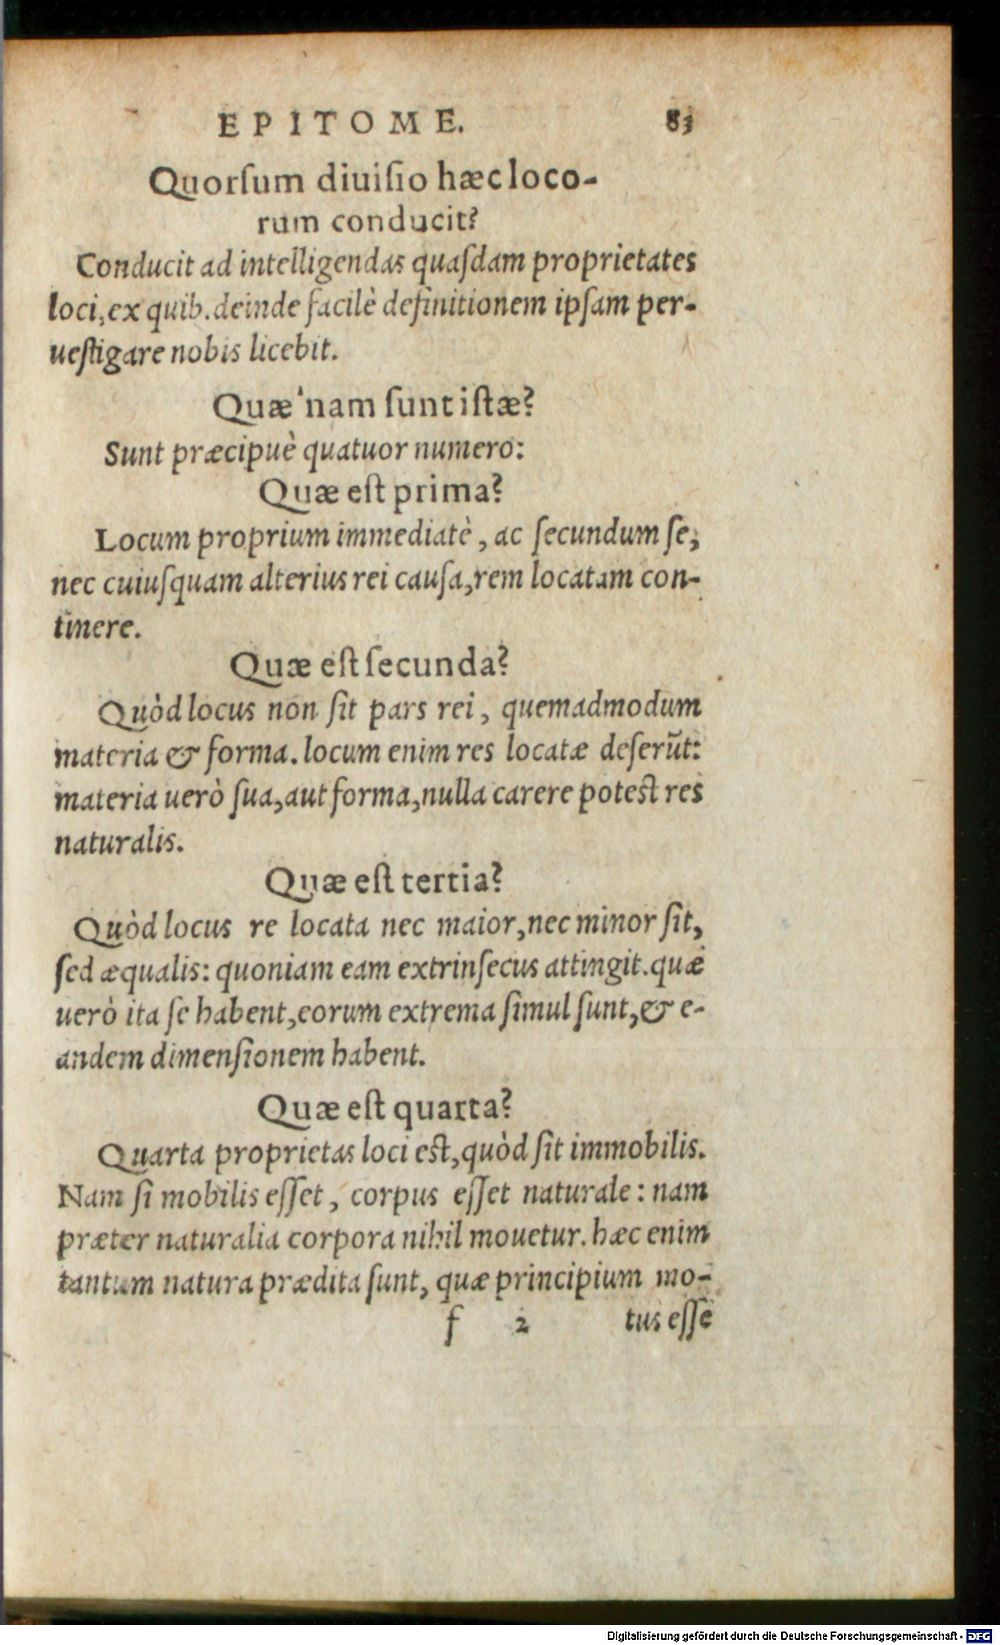 EPITOME. 83
Quorſum diuiſio hæc loco-
rum conducit?
Conducit ad intelligendas quaſdam proprietates
loci, ex quib. deinde facilè definitionem ipſam per-
ueſtigare nobis licebit.
Quæ'nam ſunt iſtæ?
Sunt præcipuè quatuor numero:
Quæ eſt prima?
Locum proprium immediatè, ac ſecundum ſe,
nec cuiuſquam alterius rei cauſa, rem locatam con-
tinere.
Quæ eſt ſecunda?
Quòd locus non ſit pars rei, quemadmodum
materia & forma. locum enim res locatæ deſerũt:
materia uerò ſua, aut forma, nulla carere poteſt res
naturalis.
Quæ eſt tertia?
Quòd locus re locata nec maior, nec minor ſit,
ſed æqualis: quoniam eam extrinſecus attingit. quæ
uerò ita ſe habent, eorum extrema ſimul ſunt, & e-
andem dimenſionem habent.
Quæ eſt quarta?
Quarta proprietas loci eſt, quòd ſit immobilis.
Nam ſi mobilis eſſet, corpus eſſet naturale: nam
præter naturalia corpora nihil mouetur. hæc enim
tantum natura prædita ſunt, quæ principium mo-
f 2 tus eſſe
Digitalisierung gefördert durch die Deutsche Forschungsgemeinschaft - DFG